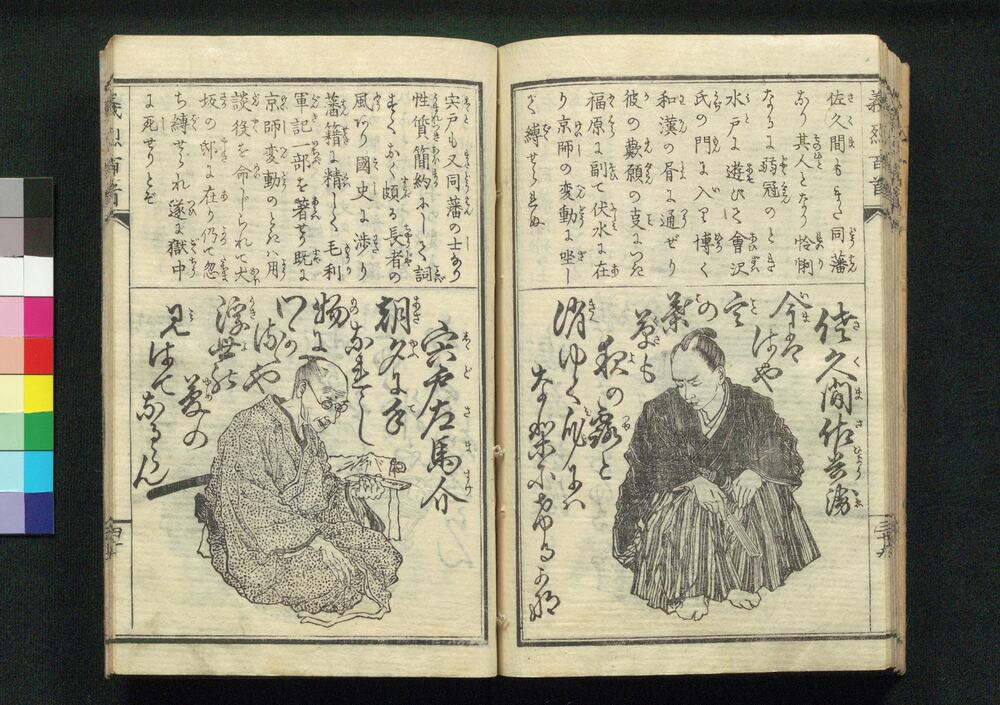 義烈百首
佐久間もまた同藩
なり其人となり怜悧
なるに弱冠のとき
水戸に遊びて會沢
氏の門に入り博く
和漢の書に通ぜり
彼の歎願の事につき
福原に副て伏水に在
り京師の変動に坐し
て縛せらる
佐久間佐兵衛
今はは
や
言
の
葉
草も
秋の露と
消ゆく
義烈百首
宍戸も又同藩の士なり
性質簡約にして詞
すくなく頗る長者の
風あり國史に渉り
藩籍に精しく毛利
軍記一部を著せり既に
京師変動のときハ用
談役を命じられて大
坂の邸に在り仍て忽
ち縛せられ遂に獄中
に死せりとぞ
宍戸左馬介
朝夕に手
なれし
物に
浮世の
夢の
見はてなるらん